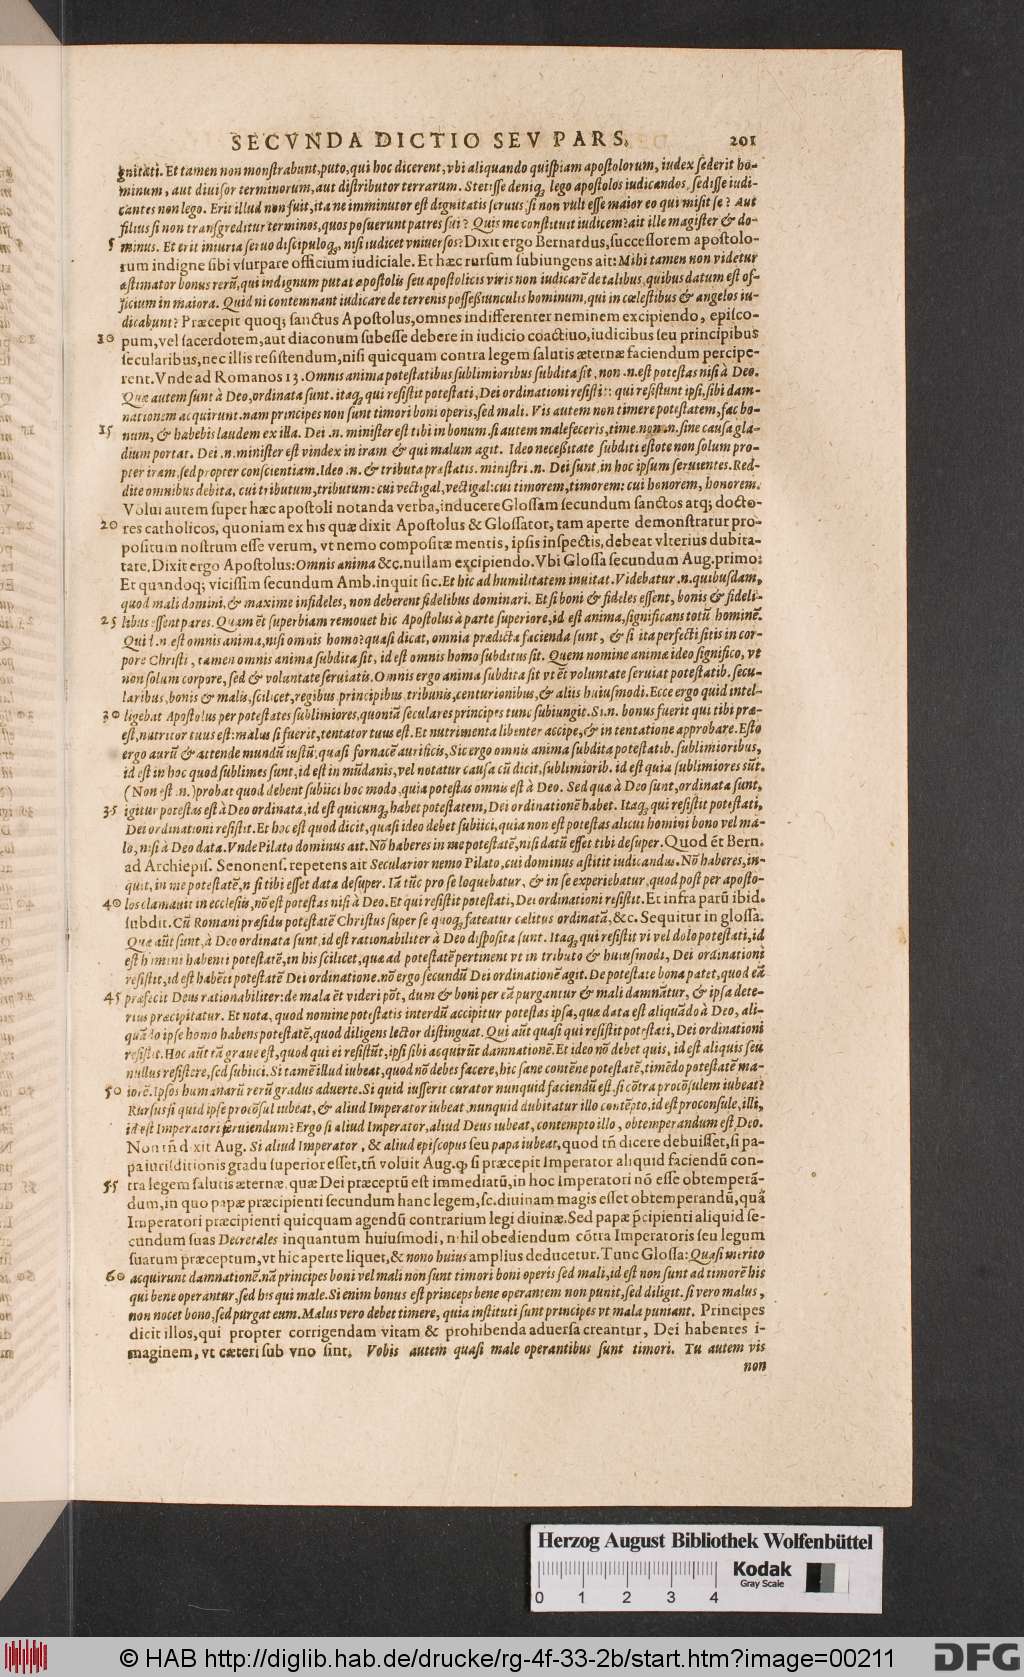 SECVNDA DICTIO SEV PARS. 201
gnitati. Et tamen non monſtrabunt, puto, qui hoc dicerent, vbi aliquando quiſpiam apoſtolorum, iudex ſederit ho-
minum, aut diuiſor terminorum, aut diſtributor terrarum. Stetiſſe deniq; lego apoſtolos iudicandos, ſediſſe iudi-
cantes non lego. Erit illud non fuit, ita ne imminutor eſt dignitatis ſeruus, ſi non vult eſſe maior eo qui miſit ſe? Aut
filius ſi non tranſgreditur terminos, quos poſuerunt patres ſui? Quis me conſtituit iudicem? ait ille magiſter & do-
5 minus. Et erit iniuria ſeruo diſcipuloq;, niſi iudicet vniuerſos? Dixit ergo Bernardus, ſucceſſorem apoſtolo-
rum indigne ſibi vſurpare officium iudiciale. Et hæc rurſum ſubiungens ait: Mihi tamen non videtur
æſtimator bonus rerū, qui indignum putat apoſtolis ſeu apoſtolicis viris non iudicare de talibus, quibus datum eſt of-
ficium in maiora. Quid ni contemnant iudicare de terrenis poſſeſſiunculis hominum, qui in cœleſtibus & angelos iu-
dicabunt? Præcepit quoq; ſanctus Apoſtolus, omnes indifferenter neminem excipiendo, epiſco-
10 pum, vel ſacerdotem, aut diaconum ſubeſſe debere in iudicio coactiuo, iudicibus ſeu principibus
ſecularibus, nec illis reſiſtendum, niſi quicquam contra legem ſalutis æternæ faciendum percipe-
rent. Vnde ad Romanos 13. Omnis anima poteſtatibus ſublimioribus ſubdita ſit, non .n. eſt poteſtas niſi à Deo.
Quæ autem ſunt à Deo, ordinata ſunt. itaq; qui reſiſtit poteſtati, Dei ordinationi reſiſtit: qui reſiſtunt ipſi, ſibi dam-
nationem acquirunt. nam principes non ſunt timori boni operis, ſed mali. Vis autem non timere poteſtatem, fac bo-
15 num, & habebis laudem ex illa. Dei .n. miniſter eſt tibi in bonum. ſi autem malefeceris, time. non .n. ſine cauſa gla-
dium portat. Dei .n. miniſter eſt vindex in iram & qui malum agit. Ideo neceſſitate ſubditi eſtote non ſolum pro-
pter iram, ſed propter conſcientiam. Ideo .n. & tributa præſtatis. miniſtri .n. Dei ſunt, in hoc ipſum ſeruientes. Red-
dite omnibus debita, cui tributum, tributum: cui vectigal, vectigal: cui timorem, timorem: cui honorem, honorem.
Volui autem ſuper hæc apoſtoli notanda verba, inducere Gloſſam ſecundum ſanctos atq; docto-
20 res catholicos, quoniam ex his quæ dixit Apoſtolus & Gloſſator, tam aperte demonſtratur pro-
poſitum noſtrum eſſe verum, vt nemo compoſitæ mentis, ipſis inſpectis, debeat vlterius dubita-
tate. Dixit ergo Apoſtolus: Omnis anima &c. nullam excipiendo. Vbi Gloſſa ſecundum Aug. primo:
Et quandoq; viciſſim ſecundum Amb. inquit ſic. Et hic ad humilitatem inuitat. Videbatur .n. quibuſdam,
quod mali domini, & maxime infideles, non deberent fidelibus dominari. Et ſi boni & fideles eſſent, bonis & fideli-
25 libus eſſent pares. Quam ēt ſuperbiam remouet hic Apoſtolus à parte ſuperiore, id eſt anima, ſignificans totū hominē.
Quid .n. eſt omnis anima, niſi omnis homo? quaſi dicat, omnia prædicta facienda ſunt, & ſi ita perfecti ſitis in cor-
pore Chriſti, tamen omnis anima ſubdita ſit, id eſt omnis homo ſubditus ſit. Quem nomine animæ ideo ſignifico, vt
non ſolum corpore, ſed & voluntate ſeruiatis. Omnis ergo anima ſubdita ſit vt ēt voluntate ſeruiat poteſtatib. ſecu-
laribus, bonis & malis, ſcilicet, regibus principibus, tribunis, centurionibus, & aliis huiuſmodi. Ecce ergo quid intel-
30 ligebat Apoſtolus per poteſtates ſublimiores, quoniā ſeculares principes tunc ſubiungit. Si .n. bonus fuerit qui tibi præ-
eſt, nutritor tuus eſt: malus ſi fuerit, tentator tuus eſt. Et nutrimenta libenter accipe, & in tentatione approbare. Eſto
ergo aurū & attende mundū iuſtū, quaſi fornacē aurificis, Sic ergo omnis anima ſubdita poteſtatib. ſublimioribus,
id eſt in hoc quod ſublimes ſunt, id eſt in mūdanis, vel notatur cauſa cū dicit, ſublimiorib. id eſt quia ſublimiores sūt.
(Non eſt .n.) probat quod debent ſubiici hoc modo, quia poteſtas omnis eſt à Deo. Sed quæ à Deo ſunt, ordinata ſunt,
35 igitur poteſtas eſt à Deo ordinata, id eſt quicunq; habet poteſtatem, Dei ordinationē habet. Itaq; qui reſiſtit poteſtati,
Dei ordinationi reſiſtit. Et hoc eſt quod dicit, quaſi ideo debet ſubiici, quia non eſt poteſtas alicui homini bono vel ma-
lo, niſi à Deo data. Vnde Pilato dominus ait. Nō haberes in me poteſtatē, niſi datū eſſet tibi deſuper. Quod ēt Bern.
ad Archiepiſ. Senonenſ. repetens ait Secularior nemo Pilato, cui dominus aſtitit iudicandus. Nō haberes, in-
quit, in me poteſtatē, n ſi tibi eſſet data deſuper. Iā tūc pro ſe loquebatur, & in ſe experiebatur, quod poſt per apoſto-
40 los clamauit in eccleſiis, nō eſt poteſtas niſi à Deo. Et qui reſiſtit poteſtati, Dei ordinationi reſiſtit. Et infra parū ibid.
ſubdit. Cū Romani præſidis poteſtatē Chriſtus ſuper ſe quoq; fateatur cœlitus ordinatā, &c. Sequitur in gloſſa.
Quæ aūt ſunt, à Deo ordinata ſunt, id eſt rationabiliter à Deo diſpoſita ſunt. Itaq; qui reſiſtit vi vel dolo poteſtati, id
eſt homini habenti poteſtatē, in his ſcilicet, quæ ad poteſtatē pertinent vt in tributo & huiuſmodi, Dei ordinationi
reſiſtit, id eſt habēti poteſtatē Dei ordinatione. nō ergo ſecundū Dei ordinationē agit. De poteſtate bona patet, quod eā
45 præfecit Deus rationabiliter: de mala ēt videri pōt, dum & boni per eā purgantur & mali damnātur, & ipſa dete-
rius præcipitatur. Et nota, quod nomine poteſtatis interdū accipitur poteſtas ipſa, quæ data eſt aliquādo à Deo, ali-
quādo ipſe homo habens poteſtatē, quod diligens lector diſtinguat. Qui aūt quaſi qui reſiſtit poteſtati, Dei ordinationi
reſiſtit. Hoc aūt tā graue eſt, quod qui ei reſiſtūt, ipſi ſibi acquirūt damnationē. Et ideo nō debet quis, id eſt aliquis ſeu
nullus reſiſtere, ſed ſubiici. Si tamē illud iubeat, quod nō debes facere, hic ſane contēne poteſtatē, timēdo poteſtatē ma-
50 iorē. Ipſos humanarū rerū gradus aduerte. Si quid iuſſerit curator nunquid faciendū eſt, ſi cōtra procōſulem iubeat?
Rurſus ſi quid ipſe procōſul iubeat, & aliud Imperator iubeat, nunquid dubitatur illo contēpto, id eſt proconſule, illi,
id eſt Imperatori ſeruiendum? Ergo ſi aliud Imperator, aliud Deus iubeat, contempto illo, obtemperandum eſt Deo.
Non tn̄ dixit Aug. Si aliud Imperator, & aliud epiſcopus ſeu papa iubeat, quod tn̄ dicere debuiſſet, ſi pa-
pa iuriſditionis gradu ſuperior eſſet, tn̄ voluit Aug. ꝙ ſi præcepit Imperator aliquid faciendū con-
55 tra legem ſalutis æternæ, quæ Dei præceptū eſt immediatū, in hoc Imperatori nō eſſe obtemperā-
dum, in quo papæ præcipienti ſecundum hanc legem, ſc. diuinam magis eſſet obtemperandū, quā
Imperatori præcipienti quicquam agendū contrarium legi diuinæ. Sed papæ p̄cipienti aliquid ſe-
cundum ſuas Decretales inquantum huiuſmodi, nihil obediendum cōtra Imperatoris ſeu legum
ſuarum præceptum, vt hic aperte liquet, & nono huius amplius deducetur. Tunc Gloſſa: Quaſi merito
60 acquirunt damnationē. nā principes boni vel mali non ſunt timori boni operis ſed mali, id eſt non ſunt ad timorē his
qui bene operantur, ſed his qui male. Si enim bonus eſt princeps bene operantem non punit, ſed diligit. ſi vero malus,
non nocet bono, ſed purgat eum. Malus vero debet timere, quia inſtituti ſunt principes vt mala puniant. Principes
dicit illos, qui propter corrigendam vitam & prohibenda aduerſa creantur, Dei habentes i-
maginem, vt cæteri ſub vno ſint. Vobis autem quaſi male operantibus ſunt timori. Tu autem vis
non
Herzog August Bibliothek Wolfenbüttel
Kodak
Gray Scale
0 1 2 3 4
© HAB http://diglib.hab.de/drucke/rg-4f-33-2b/start.htm?image=00211
DFG